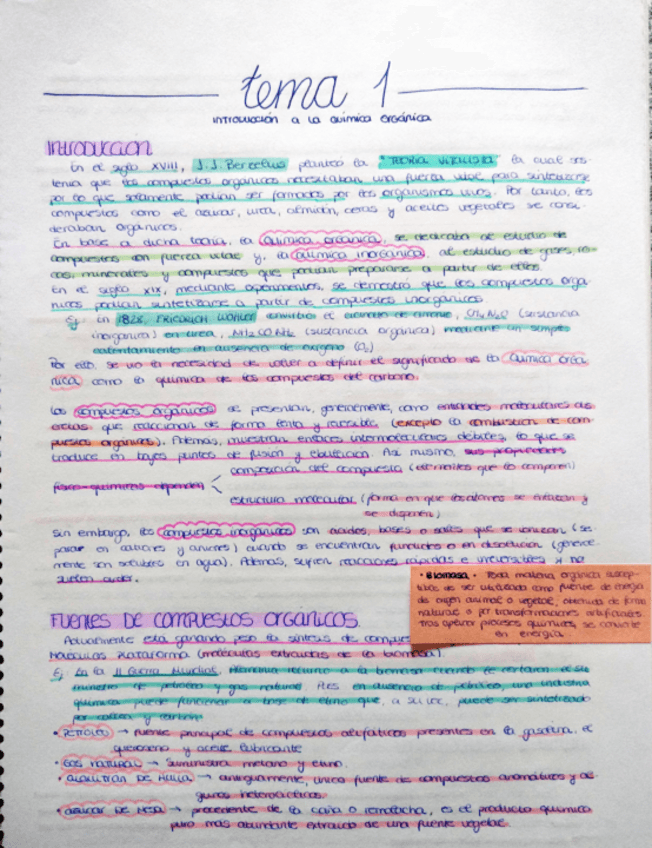 tema 1
INTRODUCCIÓN A LA QUÍMICA ORGÁNICA
INTRODUCCIÓN
En el siglo XVIII, J.J. Berzelius planteó la "TEORÍA VITALISTA" la cual sos-
tenía que los compuestos orgánicos necesitaban una fuerza vital para sintetizarse
por lo que solamente podían ser formados por los organismos vivos. Por tanto, los
compuestos como el azúcar, urea, almidón, ceras y aceites vegetales se consi-
deraban orgánicos.
En base a dicha teoría, la química orgánica, se dedicaba al estudio de
compuestos con fuerza vital y, la química inorgánica, al estudio de gases, ro-
cas, minerales y compuestos que podían prepararse a partir de ellos.
En el siglo XIX, mediante experimentos, se demostró que los compuestos orgá-
nicos podían sintetizarse a partir de compuestos inorgánicos.
Ej: En 1828, FRIEDRICH WÖHLER convirtió el cianato de amonio, (sustancia
inorgánica) en urea, NH₂CONH₂ (sustancia orgánica) mediante un simple
calentamiento en ausencia de oxígeno (O₂)
Por ello, se vio la necesidad de volver a definir el significado de la química orgá
nica como la química de los compuestos del carbono.
Los compuestos orgánicos se presentan, generalmente, como entidades moleculares dis-
cretas que reaccionan de forma lenta y reversible (excepto la combustión de com-
puestos orgánicos). Además, muestran enlaces intermoleculares débiles, lo que se
traduce en bajos puntos de fusión y ebullición. Así mismo, sus propiedades
físico-químicas dependen
composición del compuesto (elementos que lo componen)
estructura molecular (forma en que los átomos se enlazan y
se disponen)
Sin embargo, los compuestos inorgánicos son ácidos, bases o sales que se ionizan (se
paran en cationes y aniones) cuando se encuentran fundidos o en disolución (general-
mente son solubles en agua). Además, sufren reacciones rápidas e irreversibles y no
suelen arder.
• BIOMASA • Toda materia orgánica suscep-
tible de ser utilizada como fuente de energía
de origen animal o vegetal, obtenida de forma
natural o por transformaciones artificiales
tras aplicar procesos químicos, se convierte
en energía
FUENTES DE COMPUESTOS ORGÁNICOS
Actualmente está ganando peso la síntesis de compues
MOLÉCULAS PLATAFORMA (moléculas extraídas de la biomasa)
Ej: En la II Guerra Mundial, Alemania recurrió a la biomasa cuando le cortaron el su-
ministro de petróleo y gas natural. Pues en ausencia de petróleo, una industria
química puede funcionar a base de etino que, a su vez, puede ser sintetizado
por caliza y carbón
• PETRÓLEO → fuente principal de compuestos alifáticos presentes en la gasolina, el
queroseno y aceite lubricante
• GAS NATURAL → suministra metano y etano.
• ALQUITRÁN DE HULLA → antiguamente, única fuente de compuestos aromáticos y al-
gunos heterocíclicos.
• AZÚCAR DE MESA → procedente de la caña o remolacha, es el producto químico
puro más abundante extraído de una fuente vegetal.